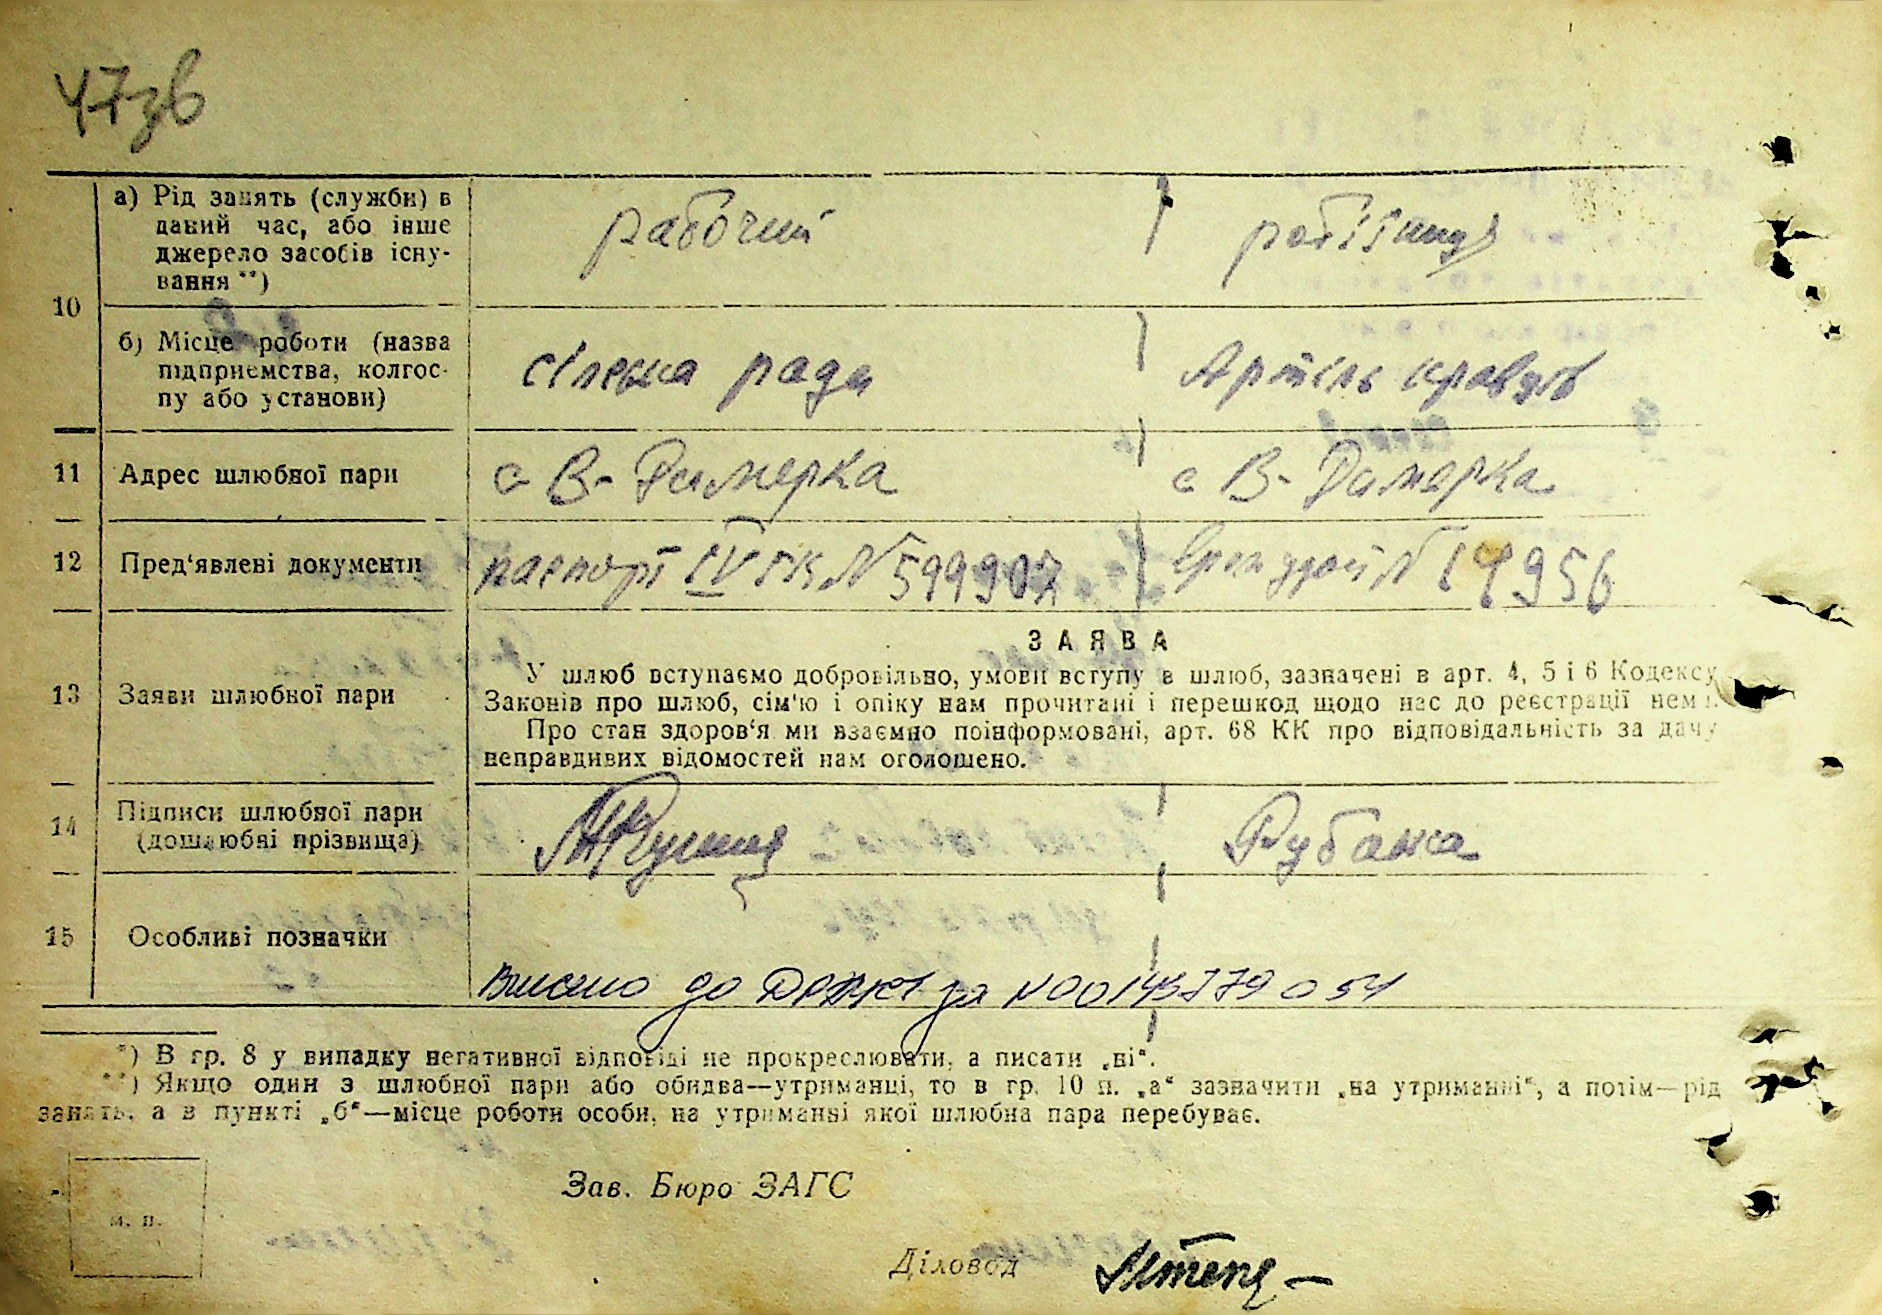 47зв
10
а) Рід занять (служби) в
даний час, або інше
джерело засобів існу-
вання **)
рабочий
робітниця
б) Місце роботи (назва
підприємства, колгос-
пу або установи)
сільська рада
Артіль кравців
11
Адрес шлюбної пари
с В-Димерка
с В-Димерка
12
Пред‘явлені документи
паспорт IV № 599907
№ 14956
13
Заяви шлюбної пари
ЗАЯВА
У шлюб вступаємо добровільно, умови вступу в шлюб, зазначені в арт. 4, 5 і 6 Кодексу
Законів про шлюб, сім'ю і опіку нам прочитані і перешкод щодо нас до реєстрації нема.
Про стан здоров‘я ми взаємно поінформовані, арт. 68 КК про відповідальність за дачу
неправдивих відомостей нам оголошено.
14
Підписи шлюбної пари
(дошлюбні прізвища)
Рубанка
15
Особливі позначки
Внесено до ДРАЦС за №00145779054
*) В гр. 8 у випадку негативної відповіді не прокреслювати, а писати „ні“.
**) Якщо один з шлюбної пари або обидва—утриманці, то в гр. 10 п. „а“ зазначити „на утриманні“, а потім—рід
занять, а в пункті „б“—місце роботи особи, на утриманні якої шлюбна пара перебуває.
м. п.
Зав. Бюро ЗАГС
Діловод